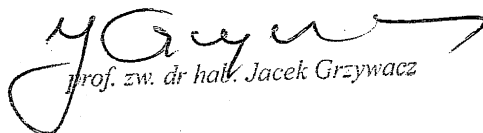 prof. zw. dr hab. Jacek Grzywacz